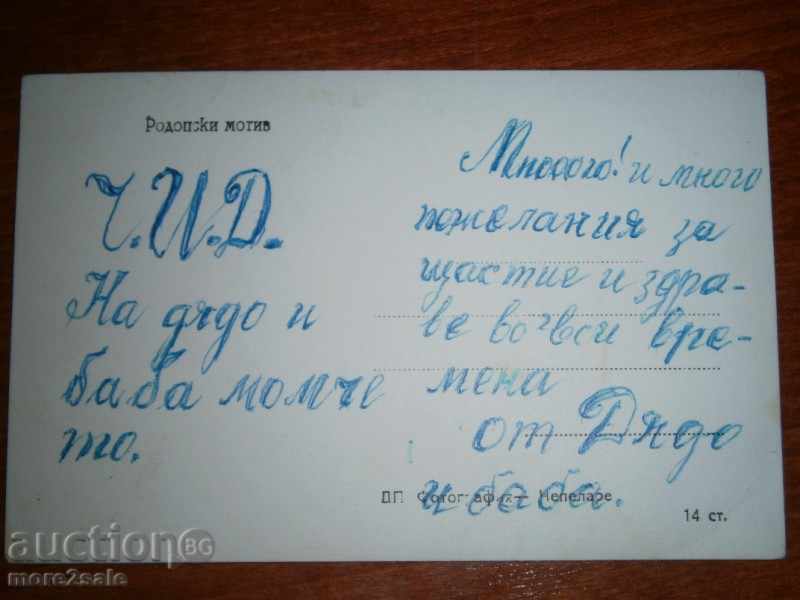 Родопски мотив
Ч.И.Д.
На дядо и
баба момче
то.
Мнооого! и много
пожелания за
щастие и здра-
ве во вси вре-
мена
от Дядо
и баба.
ДП Фотография — Чепеларе
14 ст.
auction BG
more2sale